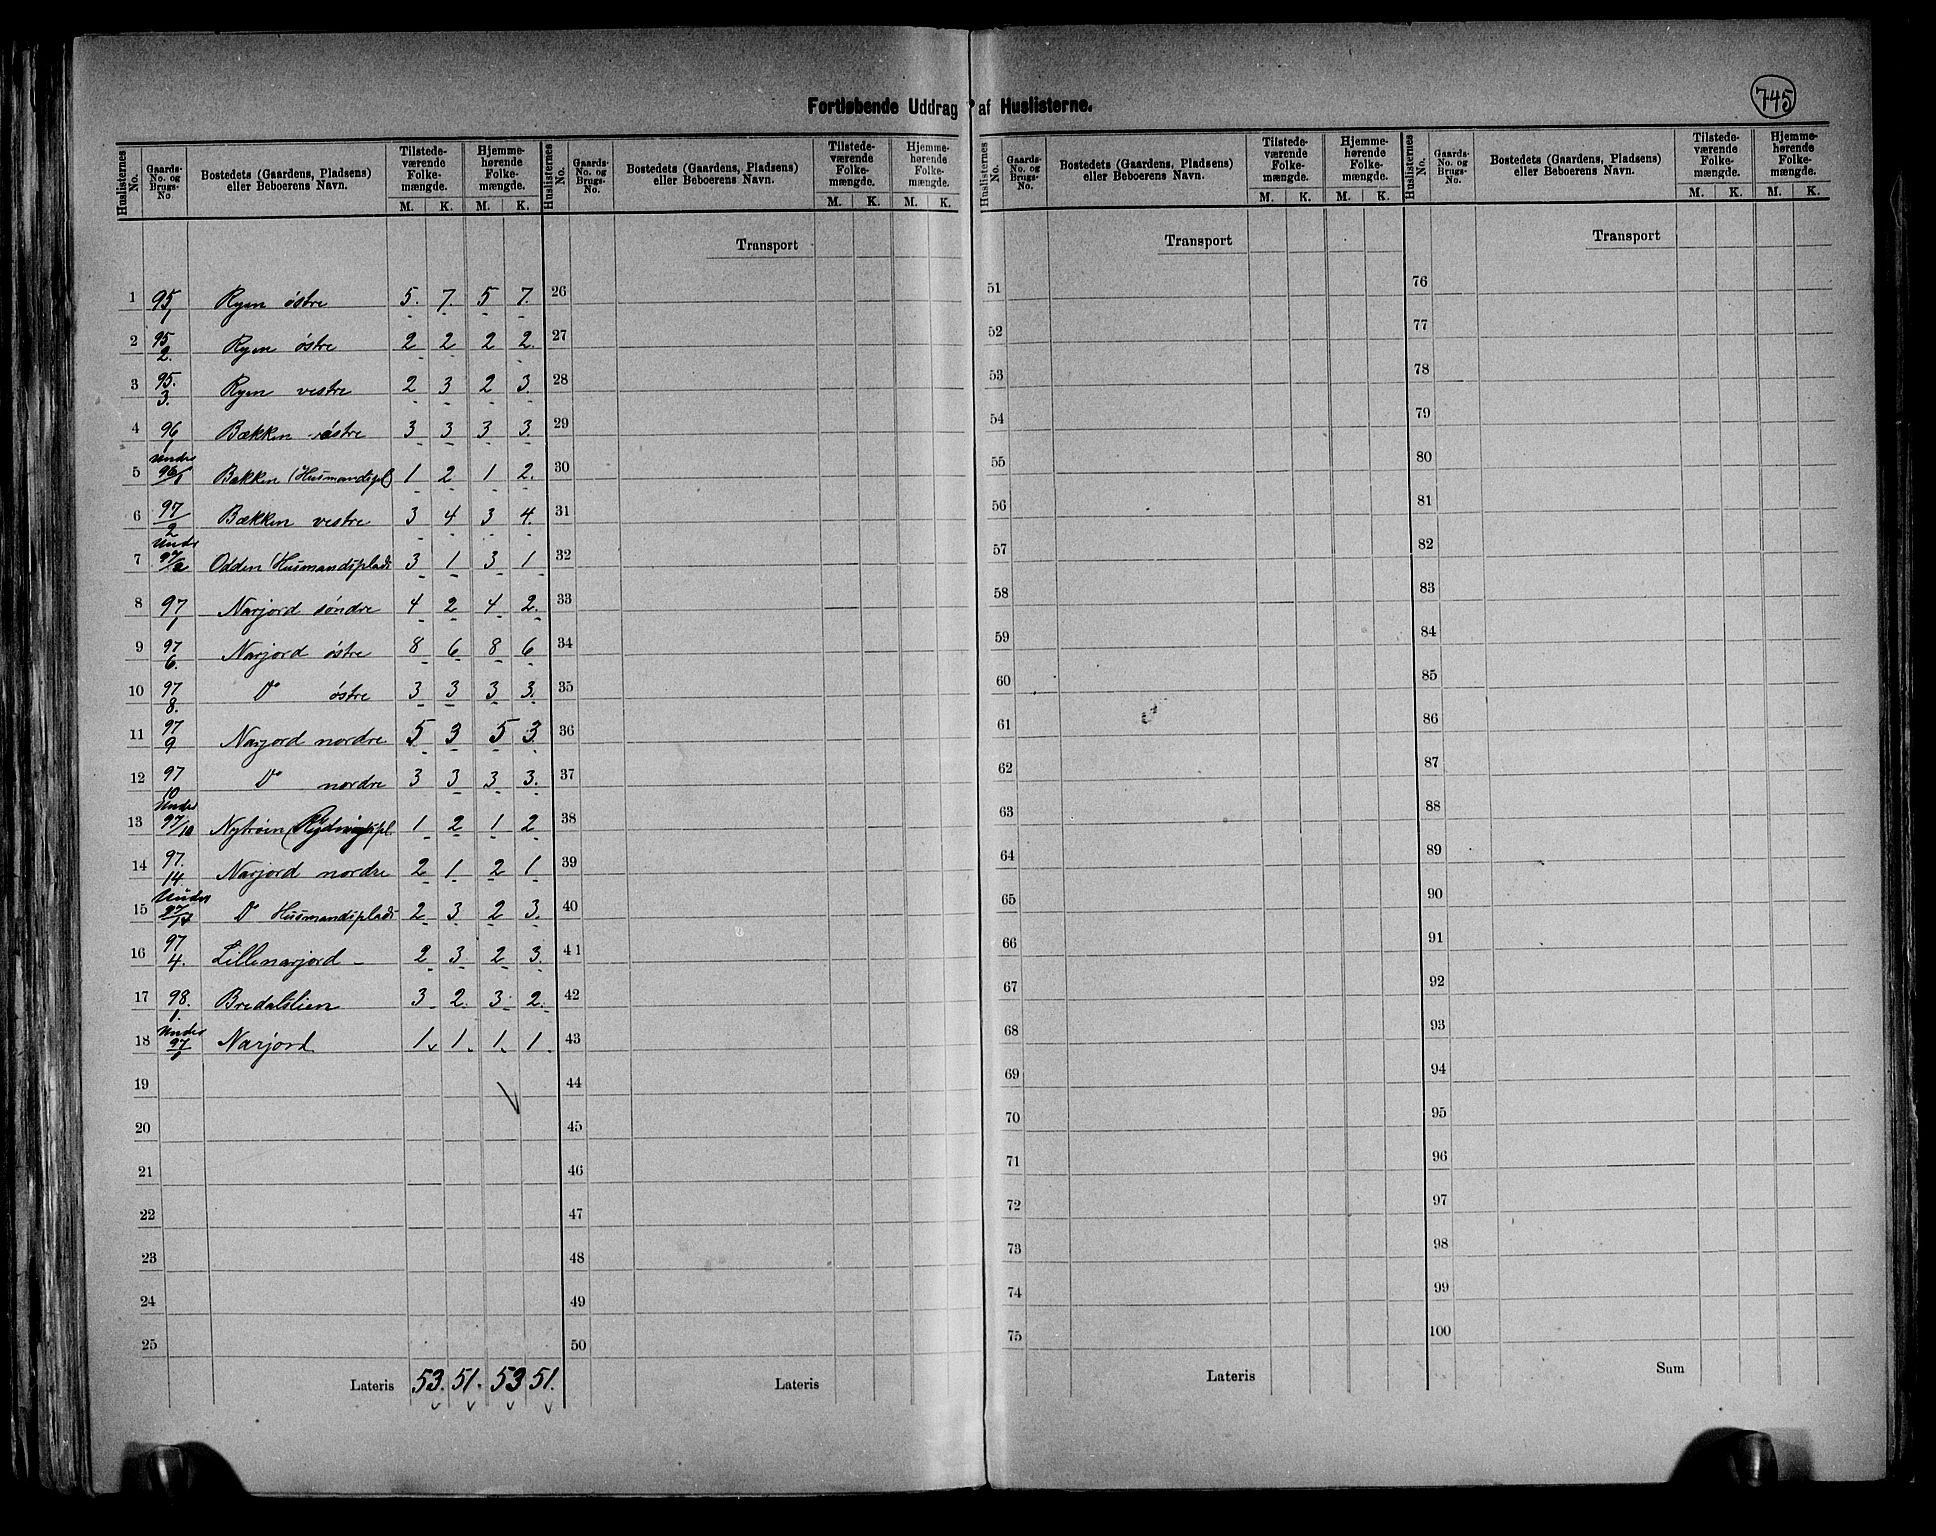 745
Fortløbende Uddrag af Huslisterne.
Huslisternes No. | Gaards-No. og Brugs-No | Bostedets (Gaardens, Pladsens) eller Beboerens Navn. | Tilstedeværende Folkemængde. M. K. | Hjemmehørende Folkemængde. M. K.
Huslisternes No. | Gaards-No. og Brugs-No. | Bostedets (Gaardens, Pladsens) eller Beboerens Navn. | Tilstedeværende Folkemængde. M. K. | Hjemmehørende Folkemængde. M. K.
Huslisternes No. | Gaards-No. og Brugs-No. | Bostedets (Gaardens, Pladsens) eller Beboerens Navn. | Tilstedeværende Folkemængde. M. K. | Hjemmehørende Folkemængde. M. K.
Huslisternes No. | Gaards-No. og Brugs-No. | Bostedets (Gaardens, Pladsens) eller Beboerens Navn. | Tilstedeværende Folkemængde. M. K. | Hjemmehørende Folkemængde. M. K.
Transport Transport Transport
1 95/1 Ryen østre 5. 7. 5 7. 26 51 76
2 95/2. Ryen østre 2 2 2 2. 27 52 77
3 95./3. Ryen vestre 2 3 2 3. 28 53 78
4 96/1 Bækken østre 3 3 3 3. 29 54 79
5 Under 96/1 Bækken (Husmandspl) 1 2 1 2. 30 55 80
6 97/2 Bækken vestre 3 4 3 4. 31 56 81
7 Under 97/2 Odden (Husmandsplads 3 1 3 1 32 57 82
8 97/1 Narjord søndre 4 2 4 2. 33 58 83
9 97/6. Narjord østre 8 6 8 6 34 59 84
10 97/8. Do østre 3 3 3 3. 35 60 85
11 97/9 Narjord nordre 5 3 5 3 36 61 86
12 97/10 Do nordre 3 3 3 3. 37 62 87
13 Under 97/10 Nytrøen (Rydningspl. 1 2 1 2 38 63 88
14 97./14. Narjord nordre 2 1 2 1 39 64 89
15 Under 97/14 Do Husmandsplads 2 3 2 3. 40 65 90
16 97/4. Lillenarjord - 2 3 2 3. 41 66 91
17 98./1. Bredalslien 3 2. 3. 2. 42 67 92
18 Under 97/1 Narjord 1 1. 1. 1. 43 68 93
19 44 69 94
20 45 70 95
21 46 71 96
22 47 72 97
23 48 73 98
24 49 74 99
25 50 75 100
Lateris 53. 51. 53 51. Lateris Lateris Sum